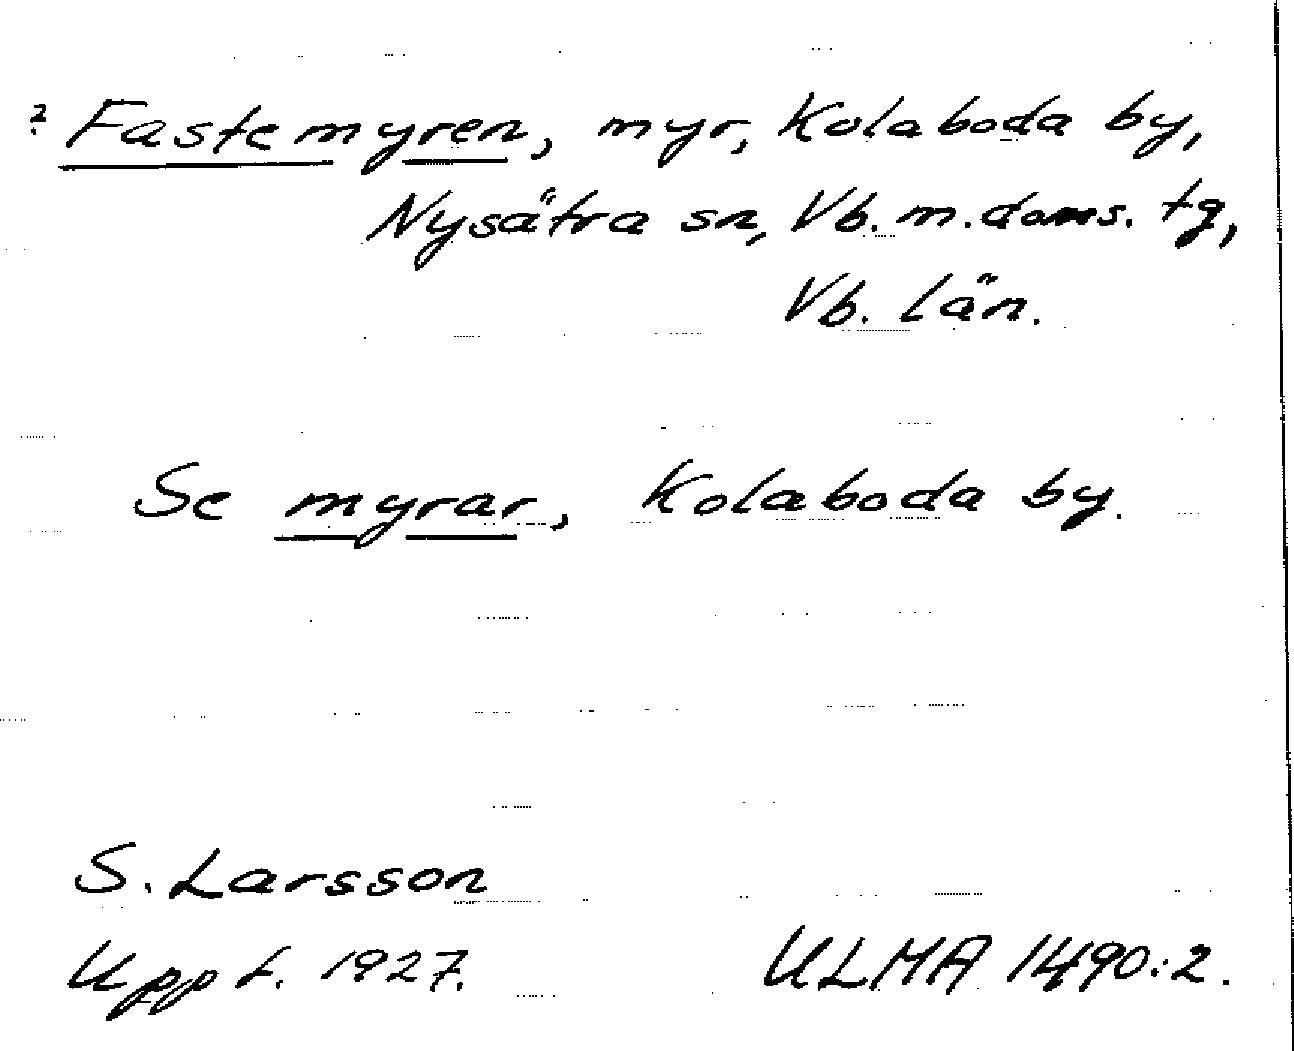 ? Fastemyren, myr, Kolaboda by,
Nysätra sn, Vb. m. doms. tg,
Vb. län.
Se myrar, Kolaboda by.
S. Larsson
Uppt. 1927.
ULMA 1490:2.